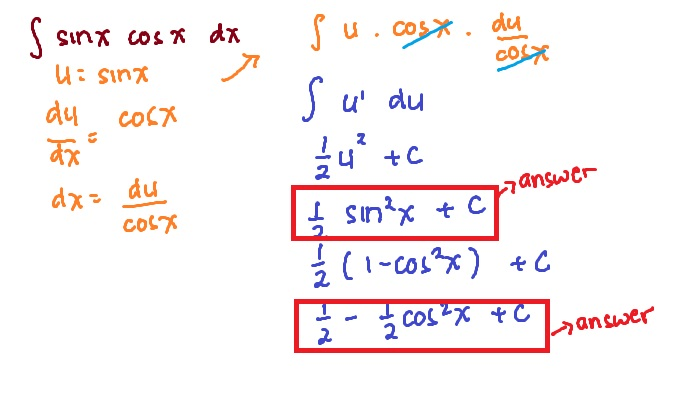 ∫ sinx cosx dx
u = sinx
du/dx = cosx
dx = du/cosx
∫ u · cosx · du/cosx
∫ u¹ du
1/2 u² + C
1/2 sin²x + C → answer
1/2 (1-cos²x) + C
1/2 - 1/2 cos²x + C → answer